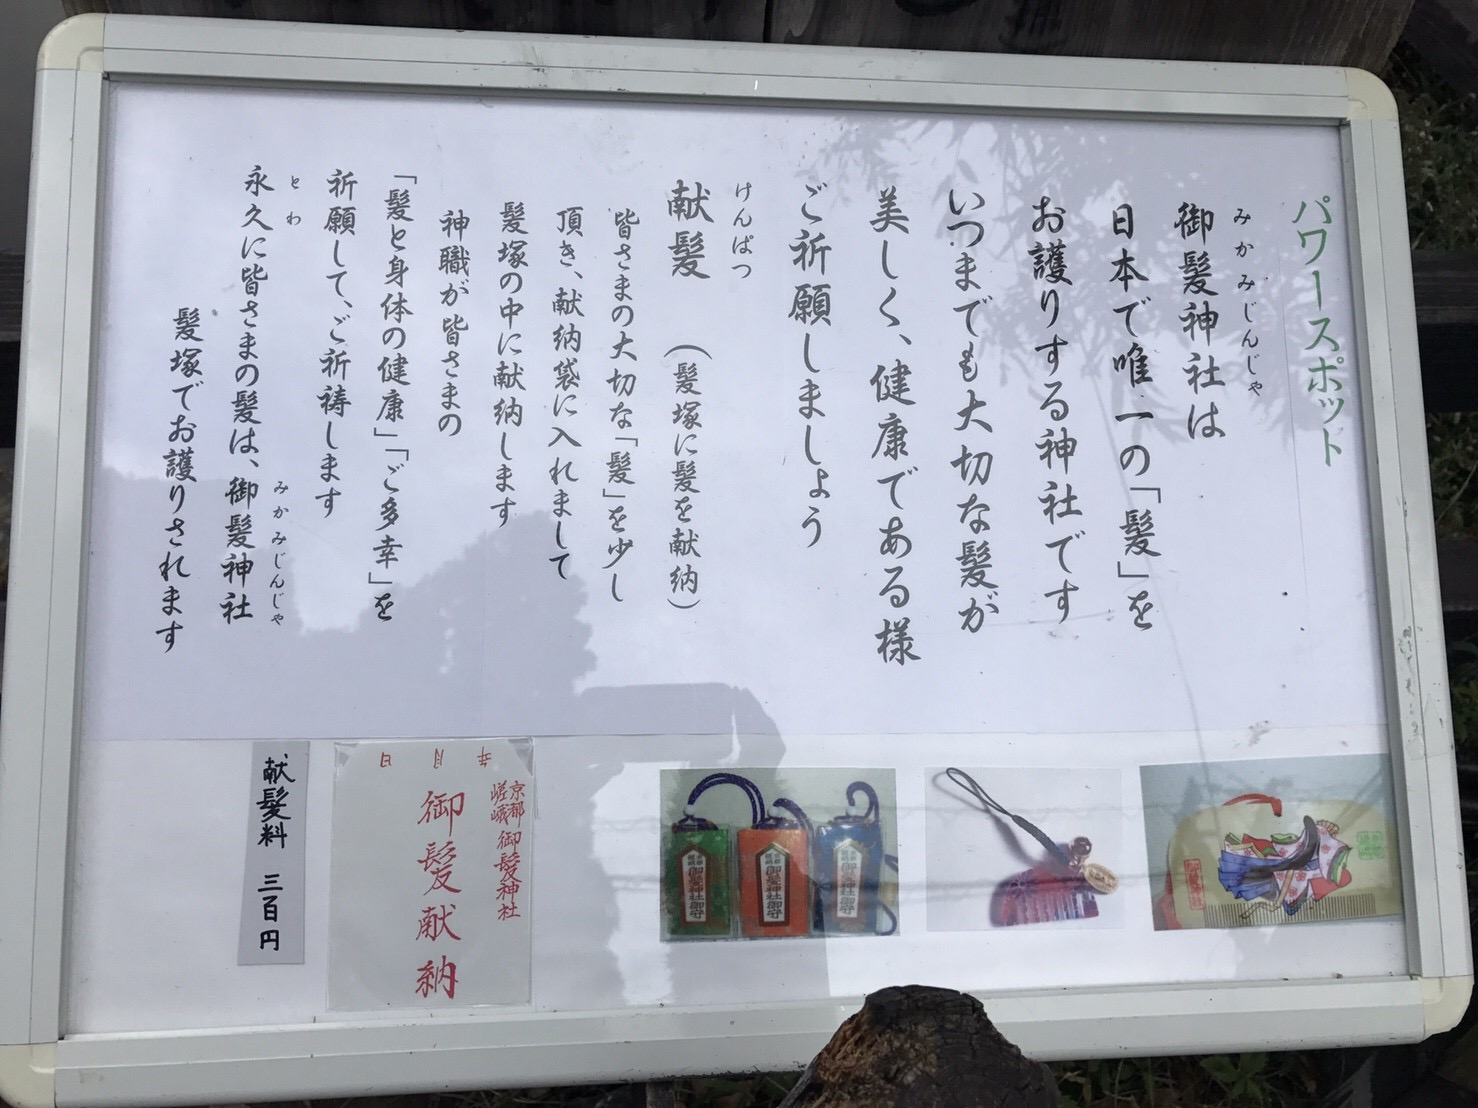 パワースポット
みかみじんじゃ
御髪神社は
日本で唯一の「髪」を
お護りする神社です
いつまでも大切な髪が
美しく、健康である様
ご祈願しましょう
けんぱつ
献髪 (髪塚に髪を献納)
皆さまの大切な「髪」を少し
頂き、献納袋に入れまして
髪塚の中に献納します
神職が皆さまの
「髪と身体の健康」「ご多幸」を
祈願して、ご祈祷します
とわ
みかみじんじゃ
永久に皆さまの髪は、御髪神社
髪塚でお護りされます
御髪神社御守
御髪神社御守
御髪神社御守
京都
嵯峨
御髪神社
御髪献納
年 月 日
献髪料 三百円